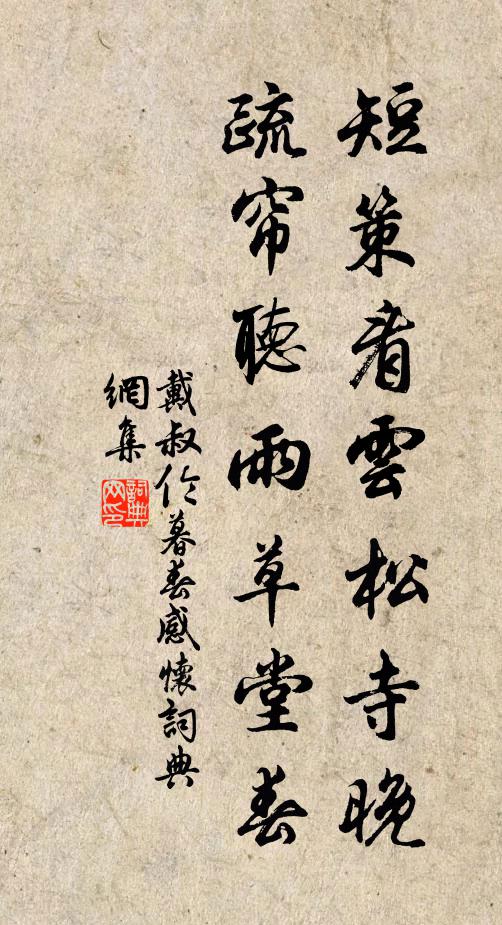 短策看雲松寺晚
疏帘聽雨草堂春
戴叔伦暮春感懷詞典
網集
詞典
网印